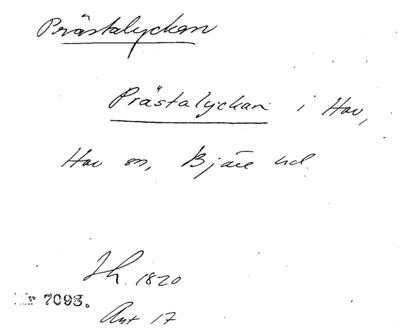 Prästalyckan
Prästalyckan i Hov,
Hov sn, Bjäre hd
Jh. 1820
Nr 7093.
Ant 17